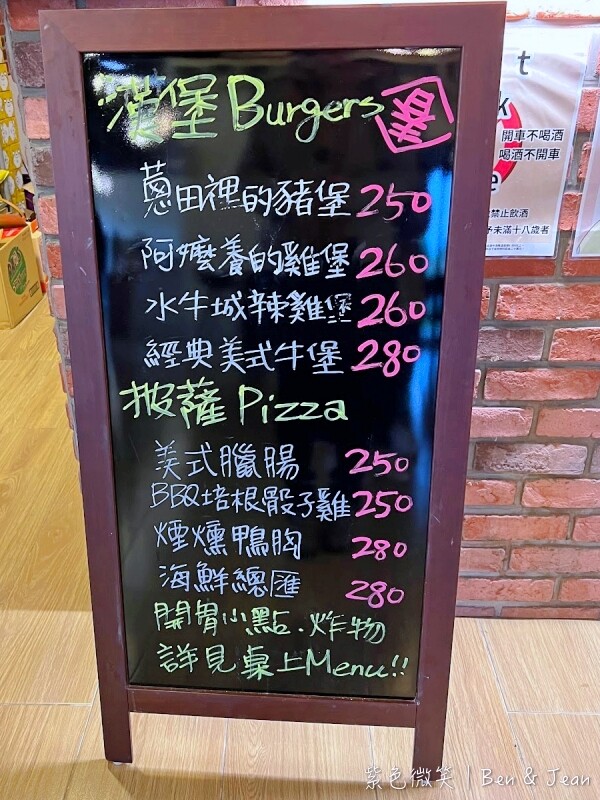 漢堡 Burgers
蔥田裡的豬堡 250
阿嬤養的雞堡 260
水牛城辣雞堡 260
經典美式牛堡 280
披薩 Pizza
美式臘腸 250
BBQ培根骰子雞 250
煙燻鴨胸 280
海鮮總匯 280
開胃小點.炸物
詳見桌上Menu!!
開車不喝酒
喝酒不開車
禁止飲酒
未滿十八歲者
紫色微笑 | Ben & Jean